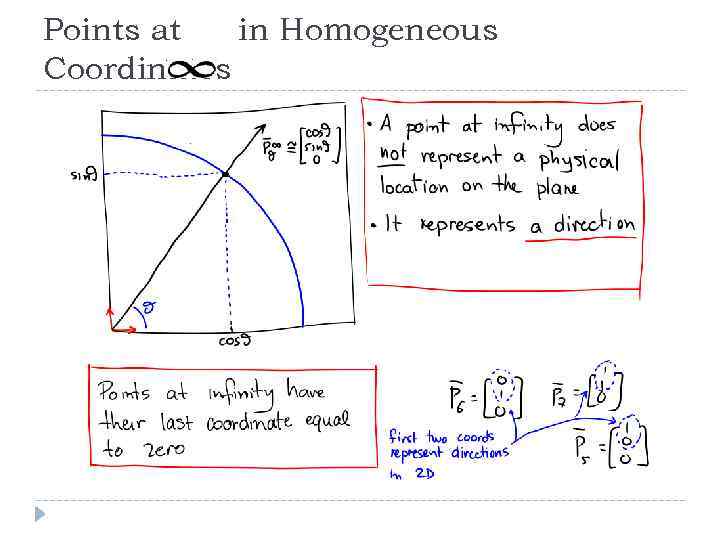 Points at ∞ in Homogeneous
Coordin s
sinθ
cosθ
θ
P̅θ∞ ≅ [cosθ sinθ 0]
• A point at infinity does
not represent a physical
location on the plane
• It represents a direction
Points at infinity have
their last coordinate equal
to zero
P̅6 = [0 1 0]
P̅7 = [1 1 0]
P̅5 = [1 0 0]
first two coords
represent directions
in 2D